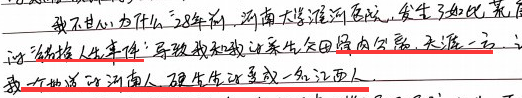 我不甘心为什么28年前,河南大学淮河医院,发生了如此荒
的"错换人生事件":导致我和我的亲生父母骨肉分离,天涯一方
我一个地道的河南人,硬生生的变成一名江西人.